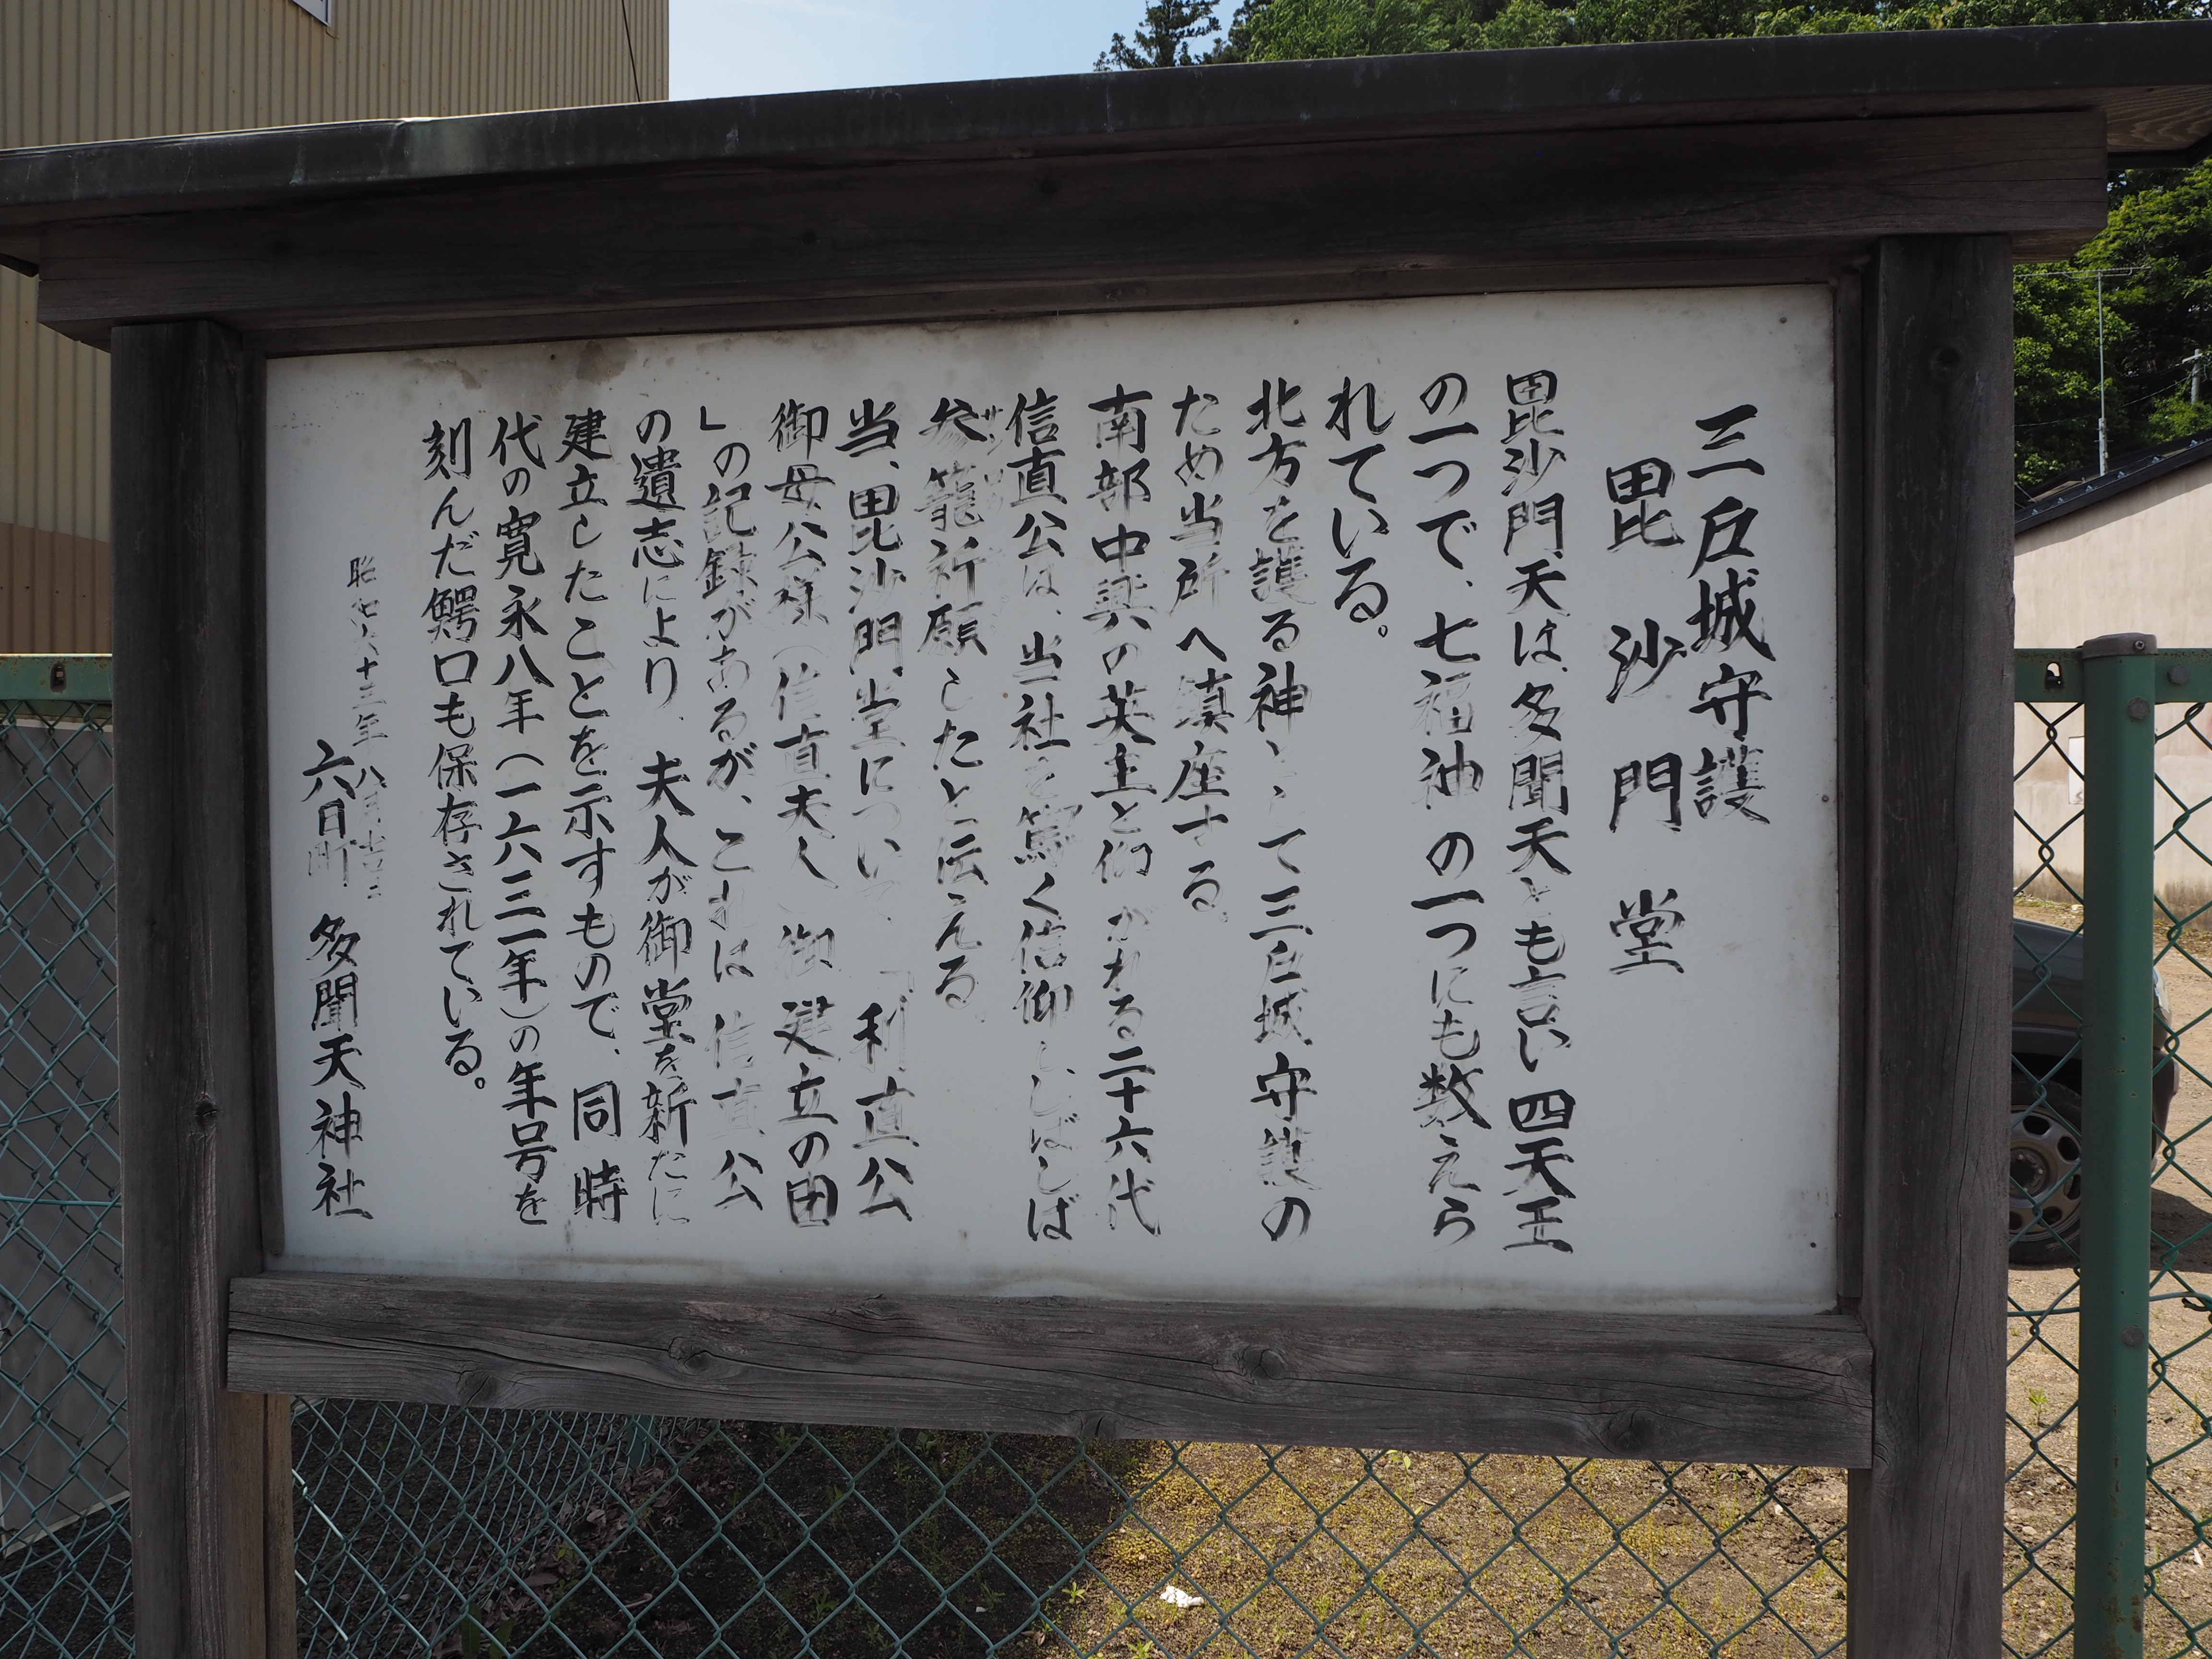 三戸城守護
毘沙門堂
毘沙門天は、多聞天とも言い四天王
の一つで、七福神の一つにも数えら
れている。
北方を護る神として三戸城守護の
ため当所へ鎮座する。
南部中興の英主と仰がれる二十六代
信直公は、当社を篤く信仰ししばしば
参籠祈願したと伝える。
当、毘沙門堂について、「利直公
御母公様(信直夫人)御建立の由
」の記録があるが、これは信直公
の遺志により、夫人が御堂を新たに
建立したことを示すもので、同時
代の寛永八年(一六三一年)の年号を
刻んだ鰐口も保存されている。
昭和六十三年八月
六日町 多聞天神社